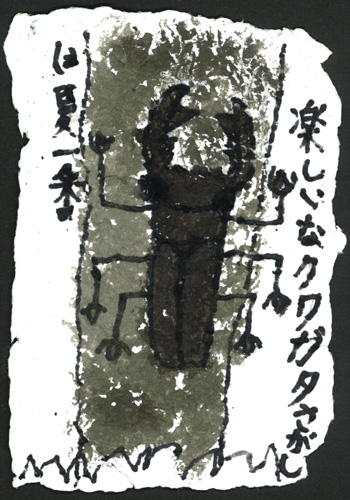 楽しいなクワガタさがし
は夏一番